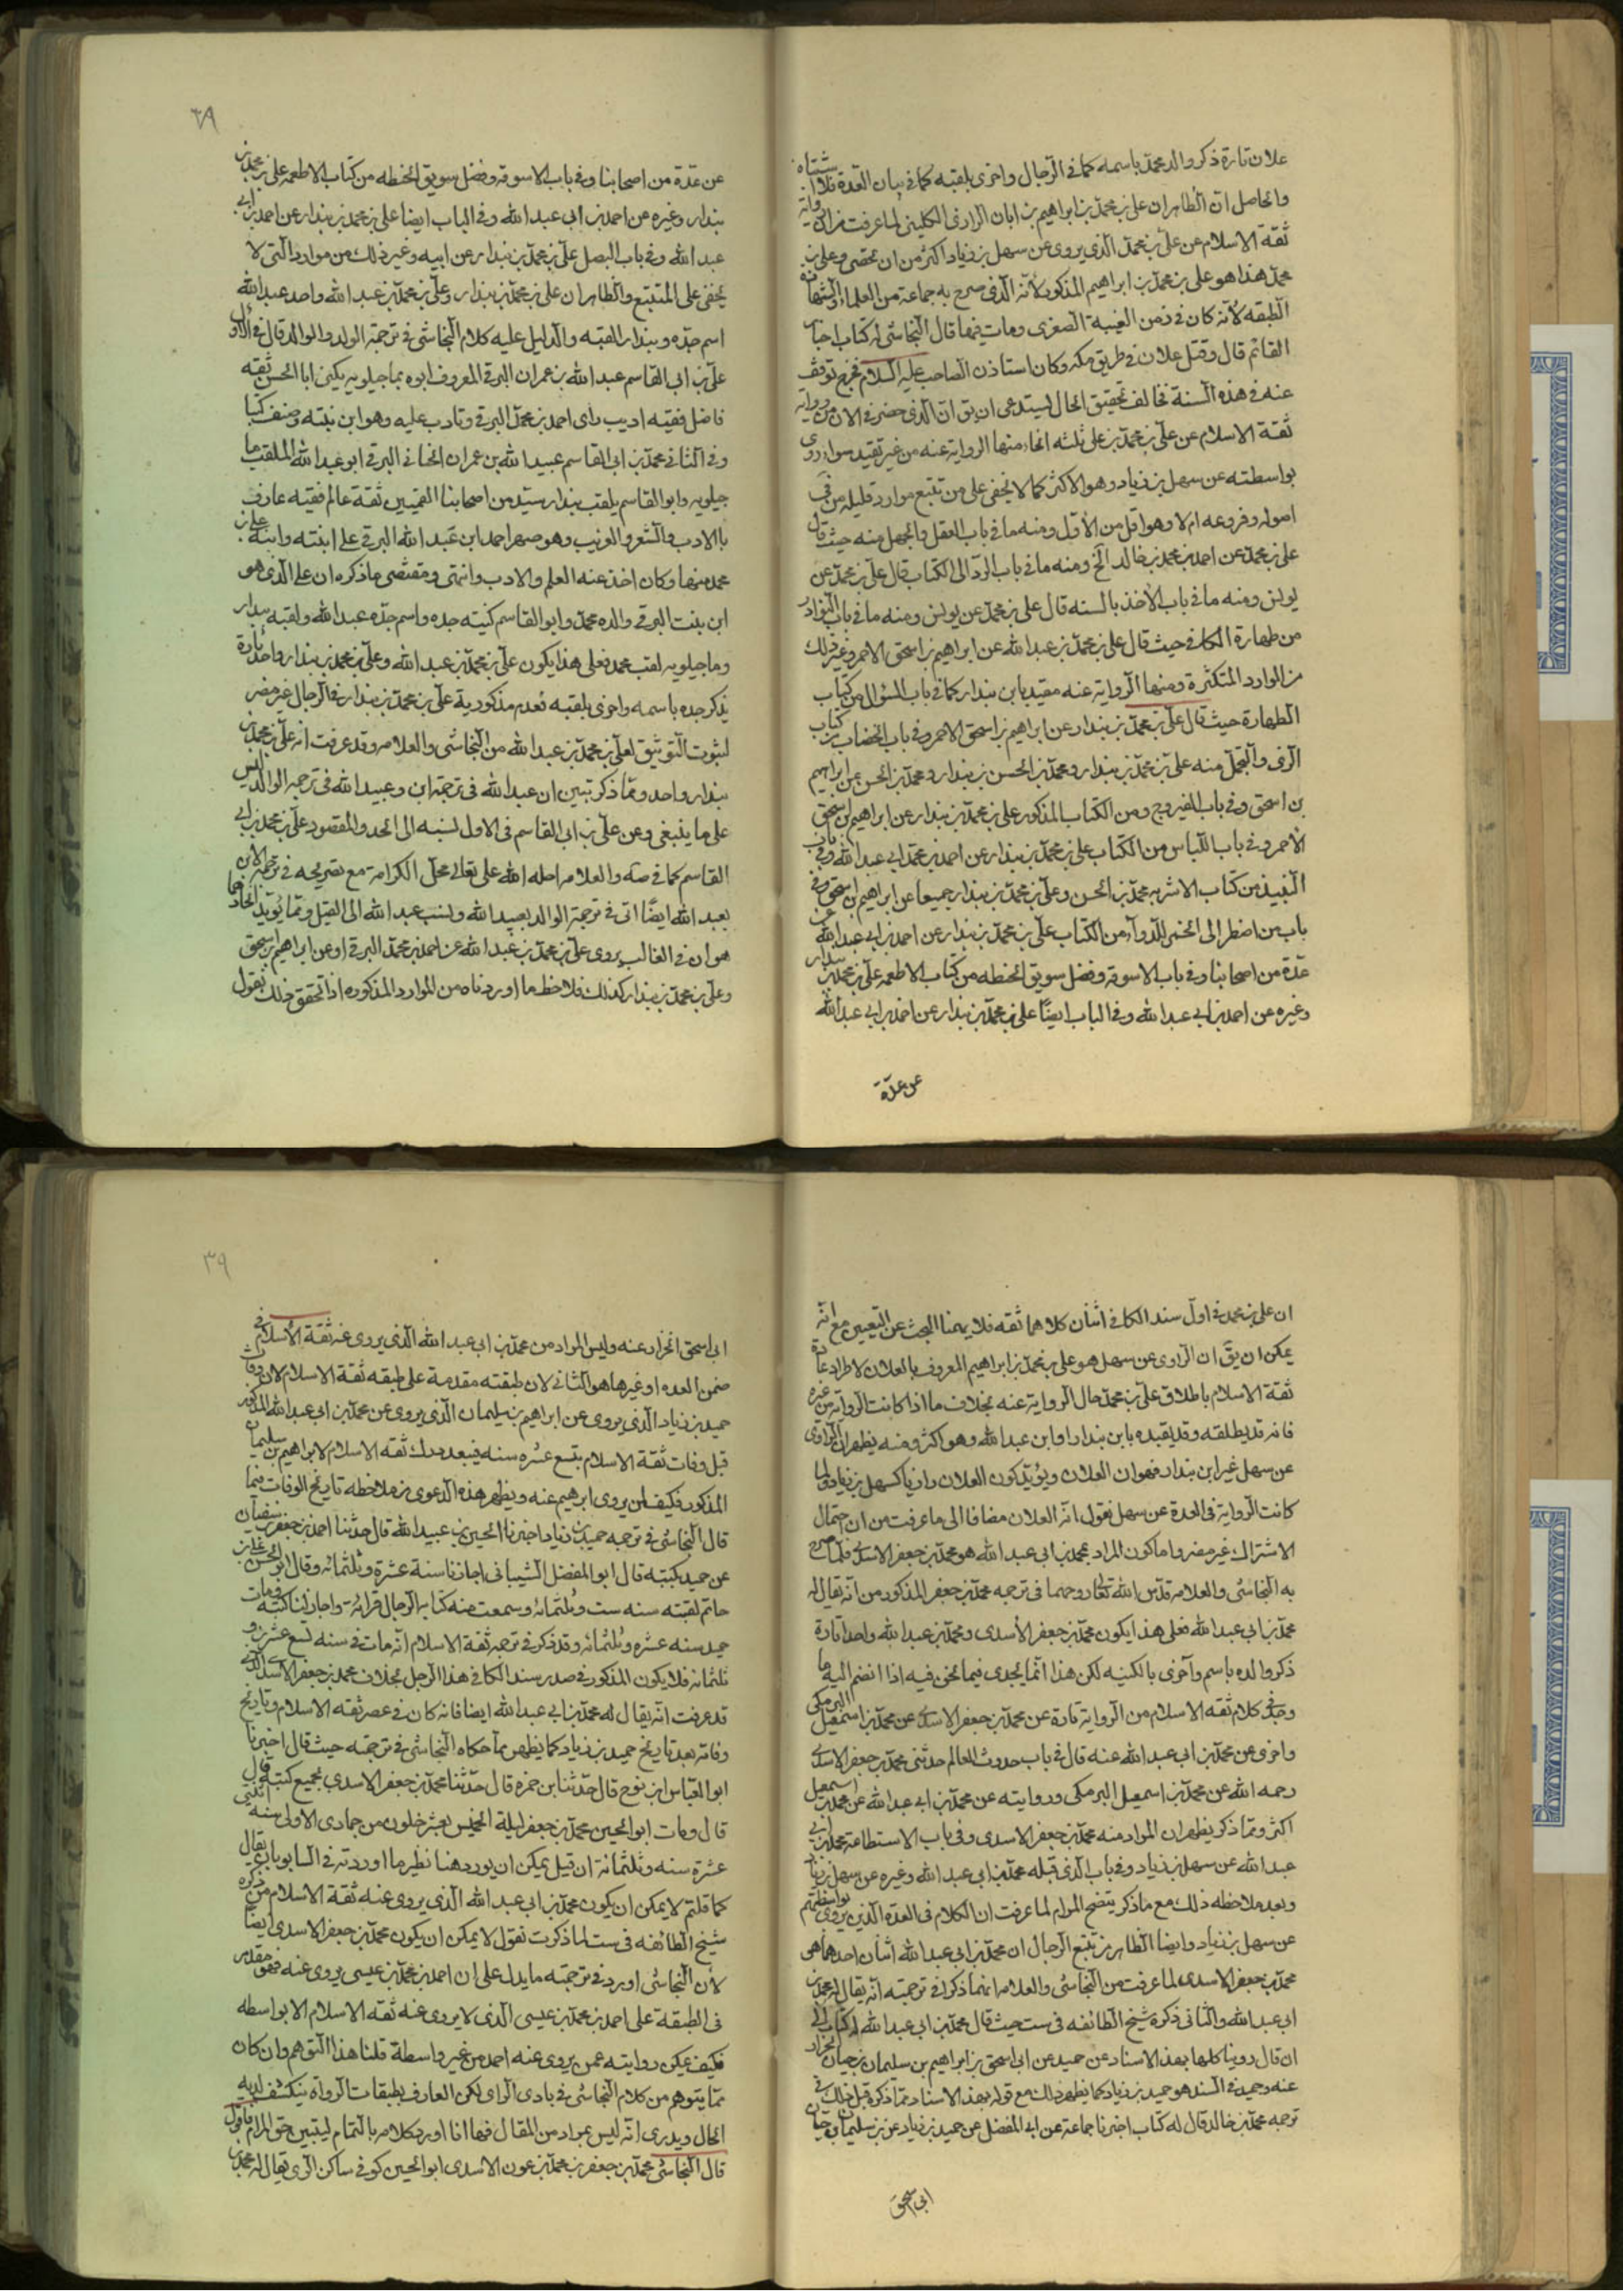 علان تارة ذكر والد محمد باسمه كما في الرجال واخرى بلقبه كما في بيان العدة فلا اشتباه
والحاصل ان الظاهر ان علي بن محمد بن ابراهيم بن ابان الرازي الكليني لما عرفت من ان رواية
ثقة الاسلام عن علي بن محمد الذي يروي عن سهل بن زياد اكثر من ان تحصى وعلي بن
محمد هذا هو علي بن محمد بن ابراهيم المذكور لانه الذي صرح به جماعة من العلماء
الطبقه لانه كان في زمن الغيبة الصغرى ومات فيها قال النجاشي له كتاب اخبار
القائم قال وقتل علان في طريق مكه وكان استاذن الصاحب عليه السلام فخرج توقف
عنه في هذه السنة فخالف تحقيق الحال يستدعي ان يق ان الذي حضر في الان من رواية
ثقة الاسلام عن علي بن محمد بن علي ثلثه انحاء منها الرواية عنه من غير تقييد سواء روى
بواسطته عن سهل بن زياد وهو الاكثر كما لا يخفى على من تتبع موارد قليله من في
اصوله وفروعه ام لا وهو اقل من الاول ومنه ما في باب العقل والجهل منه حيث قال
علي بن محمد عن احمد بن محمد بن خالد الخ ومنه ما في باب الرد الى الكتاب قال علي بن محمد عن
يونس ومنه ما في باب الاخذ بالسنه قال علي بن محمد عن يونس ومنه ما في باب النوادر
من طهارة الكافي حيث قال علي بن محمد بن عبد الله عن ابراهيم بن اسحق الاحمر وغير ذلك
من الموارد المتكثرة ومنها الرواية عنه مقيدا بابن بندار كما في باب السؤال من كتاب
الطهارة حيث قال علي بن محمد بن بندار عن ابراهيم بن اسحق الاحمر وفي باب الخضاب من كتاب
الزي والتجمل منه علي بن محمد بن بندار ومحمد بن الحسن بن بندار ومحمد بن الحسن عن ابراهيم
بن اسحق وفي باب الفيروزج ومن الكتاب المذكور علي بن محمد بن بندار عن ابراهيم بن اسحق
الاحمر وفي باب اللباس من الكتاب علي بن محمد بن بندار عن احمد بن محمد ابي عبد الله وفي باب
النبيذ من كتاب الاشربه محمد بن الحسن وعلي بن محمد بن بندار جميعا عن ابراهيم بن اسحق وفي
باب من اضطر الى الخمر للدواء من الكتاب علي بن محمد بن بندار عن احمد بن ابي عبد الله عن
عدة من اصحابنا وفي باب الاسوقه وفضل سويق الحنطه من كتاب الاطعمه علي بن محمد بن بندار
وغيره عن احمد بن ابي عبد الله وفي الباب ايضا علي بن محمد بن بندار عن احمد بن ابي عبد الله
عن عدة
عن عدة من اصحابنا وفي باب الاسوقه وفضل سويق الحنطه من كتاب الاطعمه علي بن محمد بن
بندار وغيره عن احمد بن ابي عبد الله وفي الباب ايضا علي بن محمد بن بندار عن احمد بن ابي
عبد الله وفي باب البصل علي بن محمد بن بندار عن ابيه وغير ذلك من موارد التي لا
يخفى على المتتبع والظاهر ان علي بن محمد بن بندار وعلي بن محمد بن عبد الله واحد عبد الله
اسم جده وبندار القبه والدليل عليه كلام النجاشي في ترجمة الولد والوالد قال في الاول
علي بن ابي القاسم عبد الله بن عمران البرقي المعروف ابوه بماجيلويه يكنى ابا الحسن ثقه
فاضل فقيه اديب راى احمد بن محمد البرقي وتادب عليه وهو ابن بنته وصنف كتبا
وفي الثاني محمد بن ابي القاسم عبيد الله بن عمران الجنابي البرقي ابو عبد الله الملقب ما
جيلويه وابو القاسم يلقب بندار سيد من اصحابنا القميين ثقة عالم فقيه عارف
بالادب والشعر والغريب وهو صهر احمد ابن عبد الله البرقي على ابنته وابنه علي بن
محمد منها وكان اخذ عنه العلم والادب وانتمى ومقتضى ما ذكره ان علي الذي هو
ابن بنت البرقي والده محمد وابو القاسم كنيته جده واسم جده عبد الله ولقبه بندار
وماجيلويه لقب محمد فعلى هذا يكون علي بن محمد بن عبد الله وعلي بن محمد بن بندار واحد تارة
يذكر جده باسمه واخرى بلقبه فعدم مذكورية علي بن محمد بن بندار في الرجال غير مضر
لثبوت التوثيق لعلي بن محمد بن عبد الله من النجاشي والعلامه وقد عرفت انه علي بن محمد بن
بندار واحد ومما ذكر تبين ان عبد الله في ترجمة ابن وعبيد الله في ترجمه الوالد ليس
على ما ينبغي وعن علي بن ابي القاسم في الاول لنسبه الى الحد والمقصود علي بن محمد بن ابي
القاسم كما في صه والعلامه احله الله على تعالى محل الكرامة مع تصريحه في ترجمة الابن
بعبد الله ايضا اتى في ترجمة الوالد بعبيد الله ولنسب عبد الله الى القيل ومما يؤيد اتحادهما
هو ان في الغالب يروي علي بن محمد بن عبد الله عن احمد بن محمد البرقي او عن ابراهيم بن اسحق
وعلي بن محمد بن بندار كذلك فلاحظ ما اوردناه من الموارد المذكوره اذا تحقق ذلك فنقول
ان علي بن محمد في اول سند الكافي اثنان كلاهما ثقه فلا يهمنا البحث عن التعيين مع انه
يمكن ان يق ان الراوي عن سهل هو علي بن محمد بن ابراهيم المعروف بالعلان لاطراد عادة
ثقة الاسلام باطلاق علي بن محمد حال الرواية عنه بخلاف ما اذا كانت الرواية عن غيره
فانه قد يطلقه وقد يقيده بابن بندار او ابن عبد الله وهو اكثر ومنه يظهر ان الراوي
عن سهل غير ابن بندار فهو ان العلان ويؤيد كون العلان رازيا كسهل بن زياد ولما
كانت الرواية في العدة عن سهل نقول انه العلان مضافا الى ما عرفت من ان احتمال
الاشتراك غير مضر واما كون المراد بمحمد بن ابي عبد الله هو محمد بن جعفر الاسدي فلما صرح
به النجاشي والعلامه قدس الله تعالى روحهما في ترجمه محمد بن جعفر المذكور من انه يقال له
محمد بن ابي عبد الله فعلى هذا يكون محمد بن جعفر الاسدي ومحمد بن عبد الله واحد اتارة
ذكر والده باسم واخرى بالكنيه لكن هذا انما يجدى فيما نحن فيه اذا انضم اليه ما
وجد في كلام ثقه الاسلام من الرواية تارة عن محمد بن جعفر الاسدي عن محمد بن اسمعيل البرمكي
واخرى عن محمد بن ابي عبد الله عنه قال في باب حدوث العالم حدثني محمد بن جعفر الاسدي
رحمه الله عن محمد بن اسمعيل البرمكي وروايته عن محمد بن ابي عبد الله عن محمد بن اسمعيل
اكثر ومما ذكر يظهر ان المراد منه محمد بن جعفر الاسدي وفي باب الاستطاعة محمد بن ابي
عبد الله عن سهل بن زياد وفي باب الذي قبله محمد بن ابي عبد الله وغيره عن سهل بن زياد
وبعد ملاحظه ذلك مع ما ذكر يتضح المرام لما عرفت ان الكلام في العدة الذين يروي بواسطتهم
عن سهل بن زياد وايضا الظاهر من تتبع الرجال ان محمد بن ابي عبد الله اثنان احدهما هو
محمد بن جعفر الاسدي لما عرفت من النجاشي والعلامه انهما ذكرا في ترجمته انه يقال له محمد بن
ابي عبد الله والثاني ذكره شيخ الطائفه في ست حيث قال محمد بن ابي عبد الله له كتاب الى
ان قال روينا كلها بهذا الاسناد عن حميد عن ابي اسحق بن ابراهيم بن سليمان بن حيان الخزاز
عنه وحميد في السند هو حميد بن زياد كما يظهر ذلك مع قوله بهذا الاسناد مما ذكره قبل ذلك في
ترجمه محمد بن خالد قال له كتاب اخبرنا جماعة عن ابي المفضل عن حميد بن زياد عن بن سليمان بن حيان
ابي اسحق
٣٩
ابي اسحق الخزاز عنه وليس المراد من محمد بن ابي عبد الله الذي يروي عنه ثقة الاسلام في
ضمن العده او غيرها هو الثاني لان طبقته مقدمة على طبقه ثقة الاسلام لان وفات
حميد بن زياد الذي يروي عن ابراهيم بن سليمان الذي يروي عن محمد بن ابي عبد الله المذكور
قبل وفات ثقة الاسلام بتسع عشره سنه فيبعد درك ثقه الاسلام لابراهيم بن سليمان
المذكور فكيف لمن يروي ابرهيم عنه ويظهر هذه الدعوى من ملاحظه تاريخ الوفات فيما
قال النجاشي في ترجمه حميد بن زياد اخبرنا الحسين بن عبيد الله قال حدثنا احمد بن جعفر بن سفيان
عن حميد بكتبه قال ابو المفضل الشيباني اجازنا سنة عشرة وثلثمائه وقال ابو الحسن علي بن
حاتم لقيته سنه ست وثلثمائه وسمعت منه كتابه الرجال قرائة واجاز لنا كتبه ومات
حميد سنه عشره وثلثمائه وقد ذكر في ترجمه ثقة الاسلام انه مات في سنه تسع عشرين و
ثلثمائه فلا يكون المذكور في صدر سند الكافي هذا الرجل بخلاف محمد بن جعفر الاسدي الذي
قد عرفت انه يقال له محمد بن ابي عبد الله ايضا فانه كان في عصر ثقه الاسلام وتاريخ
وفاته بعد تاريخ حميد بن زياد كما يظهر مما حكاه النجاشي في ترجمته حيث قال اخبرنا
ابو العباس ابن نوح قال حدثنا بن حمزه قال حدثنا محمد بن جعفر الاسدي بجميع كتبه قال
قال ومات ابو الحسين محمد بن جعفر ليلة الخميس لعشر خلون من جمادى الاولى سنه اثنتي
عشرة سنه وثلثمائة ان قيل يمكن ان يورد هنا نظير ما اوردته في السابق بان يقال
كما قلتم لا يمكن ان يكون محمد بن ابي عبد الله الذي يروي عنه ثقة الاسلام من ذكره
شيخ الطائفه في ست لما ذكرت نقول لا يمكن ان يكون محمد بن جعفر الاسدي ايضا
لان النجاشي اورد في ترجمته ما يدل على ان احمد بن محمد بن عيسى يروي عنه فهو مقدم
في الطبقة على احمد بن محمد بن عيسى الذي لا يروي عنه ثقه الاسلام الا بواسطه
فكيف يمكن روايته عمن يروي عنه احمد من غير واسطة قلنا هذا التوهم وان كان
مما يتوهم من كلام النجاشي في بادى الراى لكن العارف بطبقات الرواة ينكشف لديه
الحال ويدرى انه ليس بمراد من المقال فها انا اورد كلامه بالتمام ليتبين حق المرام فاقول
قال النجاشي محمد بن جعفر بن محمد بن عون الاسدي ابو الحسين كوفي ساكن الري يقال له محمد بن